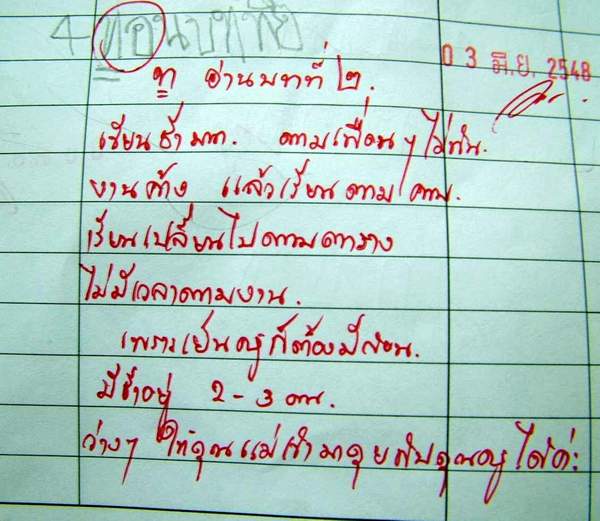 4
03 มิ.ย. 2548
ท อ่านบทที่ ๒.
เขียนช้ามาก. ตามเพื่อนๆ ไม่ทัน.
งานค้าง แล้วเรียนตาม
เรียนเปลี่ยนไปตามตาราง
ไม่มีเวลาตามงาน.
เพราะเป็นครูก็ต้องมีสอน.
มีช้าอยู่ 2-3 คน.
ว่างๆ ให้คุณแม่เข้ามาคุยกับคุณครูได้ค่ะ